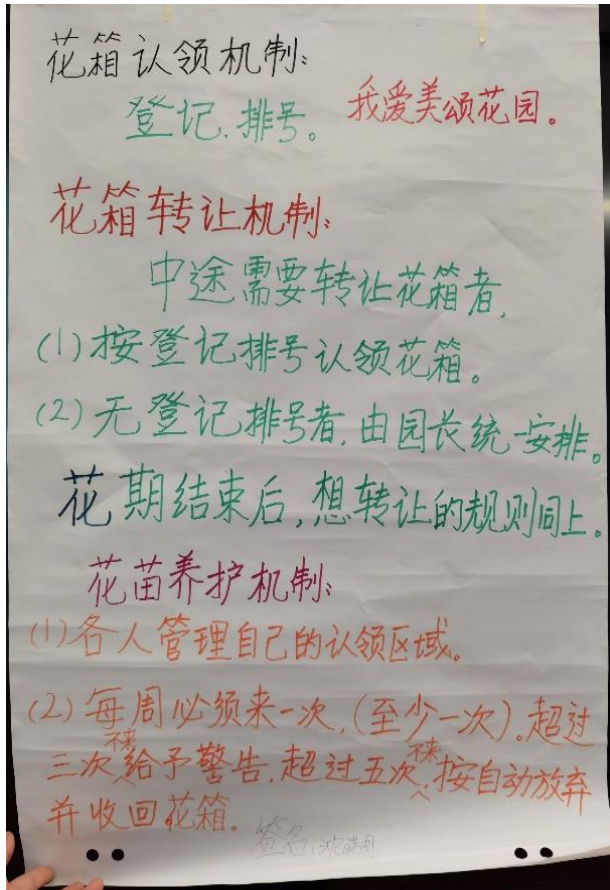 花箱认领机制:
登记.排号。 我爱美颂花园。
花箱转让机制:
中途需要转让花箱者,
(1)按登记排号认领花箱。
(2)无登记排号者,由园长统一安排。
花期结束后,想转让的规则同上。
花苗养护机制:
(1)各人管理自己的认领区域。
(2)每周必须来一次,(至少一次)。超过
三次不来给予警告,超过五次不来,按自动放弃
并收回花箱。
签名: